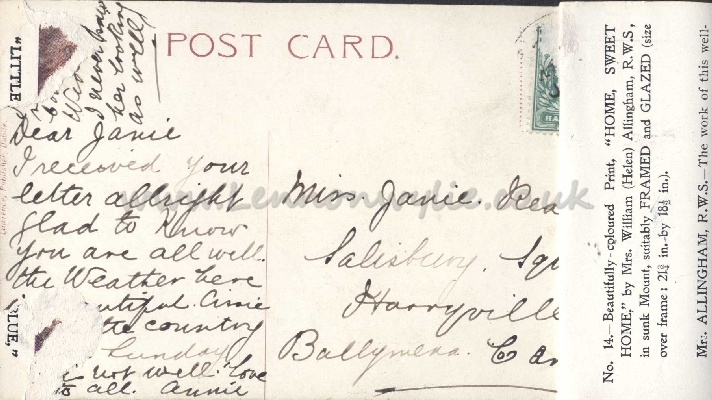 POST CARD.
I never saw
her looking
as well
Dear Janie
I received your
letter allright
glad to know
you are all well.
the Weather here
Annie
to country
Sunday
not well. love
to all. Annie
Miss. Janie.
Salisbury. Sqr
Harryville
Ballymena. C An
"LITTLE
BLUE."
HA
www.Lennonwylie.co.uk
No. 14.—Beautifully-coloured Print, "HOME, SWEET
HOME," by Mrs. William (Helen) Allingham, R.W.S.,
in sunk Mount, suitably FRAMED and GLAZED (size
over frame: 21¾ in.-by 18½ in.).
Mrs. ALLINGHAM, R.W.S.—The work of this well-